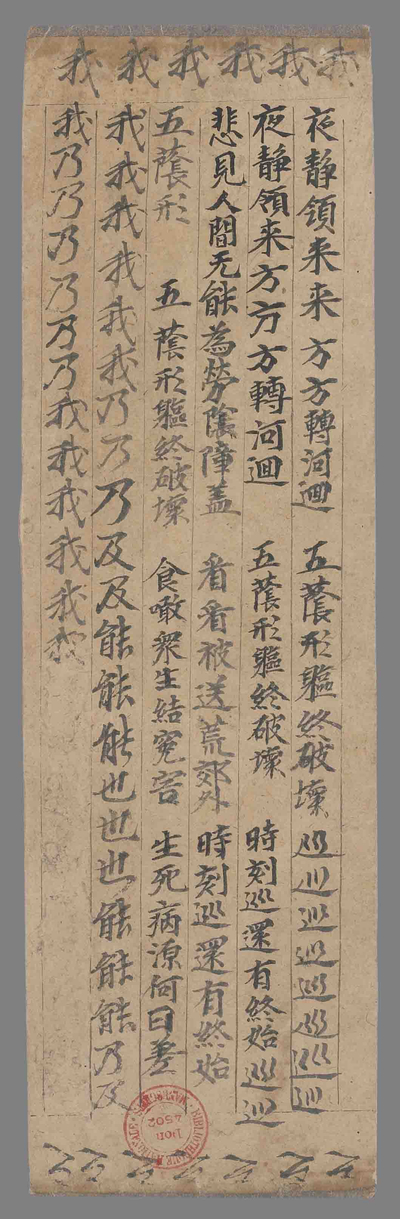 我我我我我我
夜静領来来方方轉河迴 五蔭形軀終破壞 巡巡巡巡巡巡巡巡
夜静領来方方方轉河迴 五蔭形軀終破壞 時刻巡還有終始巡巡
悲見人間无能為勞蔭障盖 看看被送荒郊外 時刻巡還有終始
五蔭形 五蔭形軀終破壞 食噉衆生結寃害 生死病源何日差
我我我我我我乃乃乃及及能能能也也也能能能乃及
我乃乃乃乃乃乃我我我我我我
DON
4502